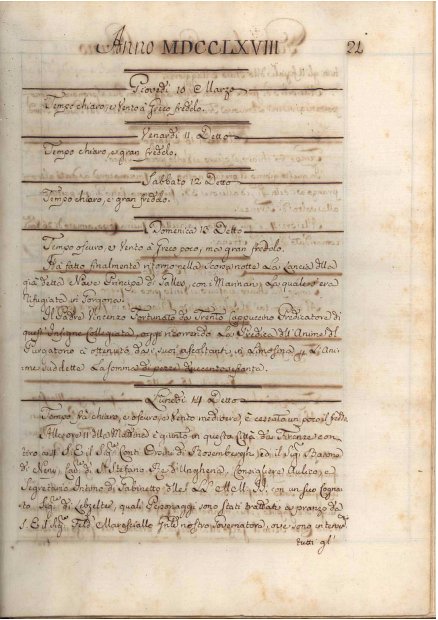 Anno MDCCLXVIII 21
Giovedì 10 Marzo
Tempo chiaro, e Vento à Greco freddo.
Venardì 11 Detto
Tempo chiaro, e gran freddo.
Sabbato 12 Detto
Tempo chiaro, e gran freddo.
Domenica 13 Detto
Tempo oscuro, e Vento à Greco poco, ma gran freddo.
Hà fatto finalmente ritorno nella scorsa notte La Lancia della
già detta Nave Principe di Galles, con i Marinari, La quale s'era
rifugiata in Gorgona.
Il Padre Vincenzo Fortunato da Trento Cappuccino Predicatore di
quest'Insigne Collegiata, oggi ricorrendo La Predica dell'Anime del
Purgatorio à ottenuta da i suoi ascoltanti, in Limosina p. L'Ani
ime suddette La Somma di pezze duecento
Lunedì 14 Detto
Tempo frà chiaro, e oscuro, e Vento mediocre, è cessato un poco il freddo
All'ore 11 della Mattina è giunto in questa Città da Firenze
S. E. il Sig. Conte di Rosenbergh, ed il Sig. Barone
di Cav. di S. Stefano Re d'Ungheria, Consigliere Aulico, e
Segretario Intimo di Gabinetto delle LL. MM. II., con un suo Cogna
to Sig. di quali Personaggi sono stati trattati à pranzo da
S. E. il Sig. Maresciallo nostro Governatore, ove sono
tutti gl'